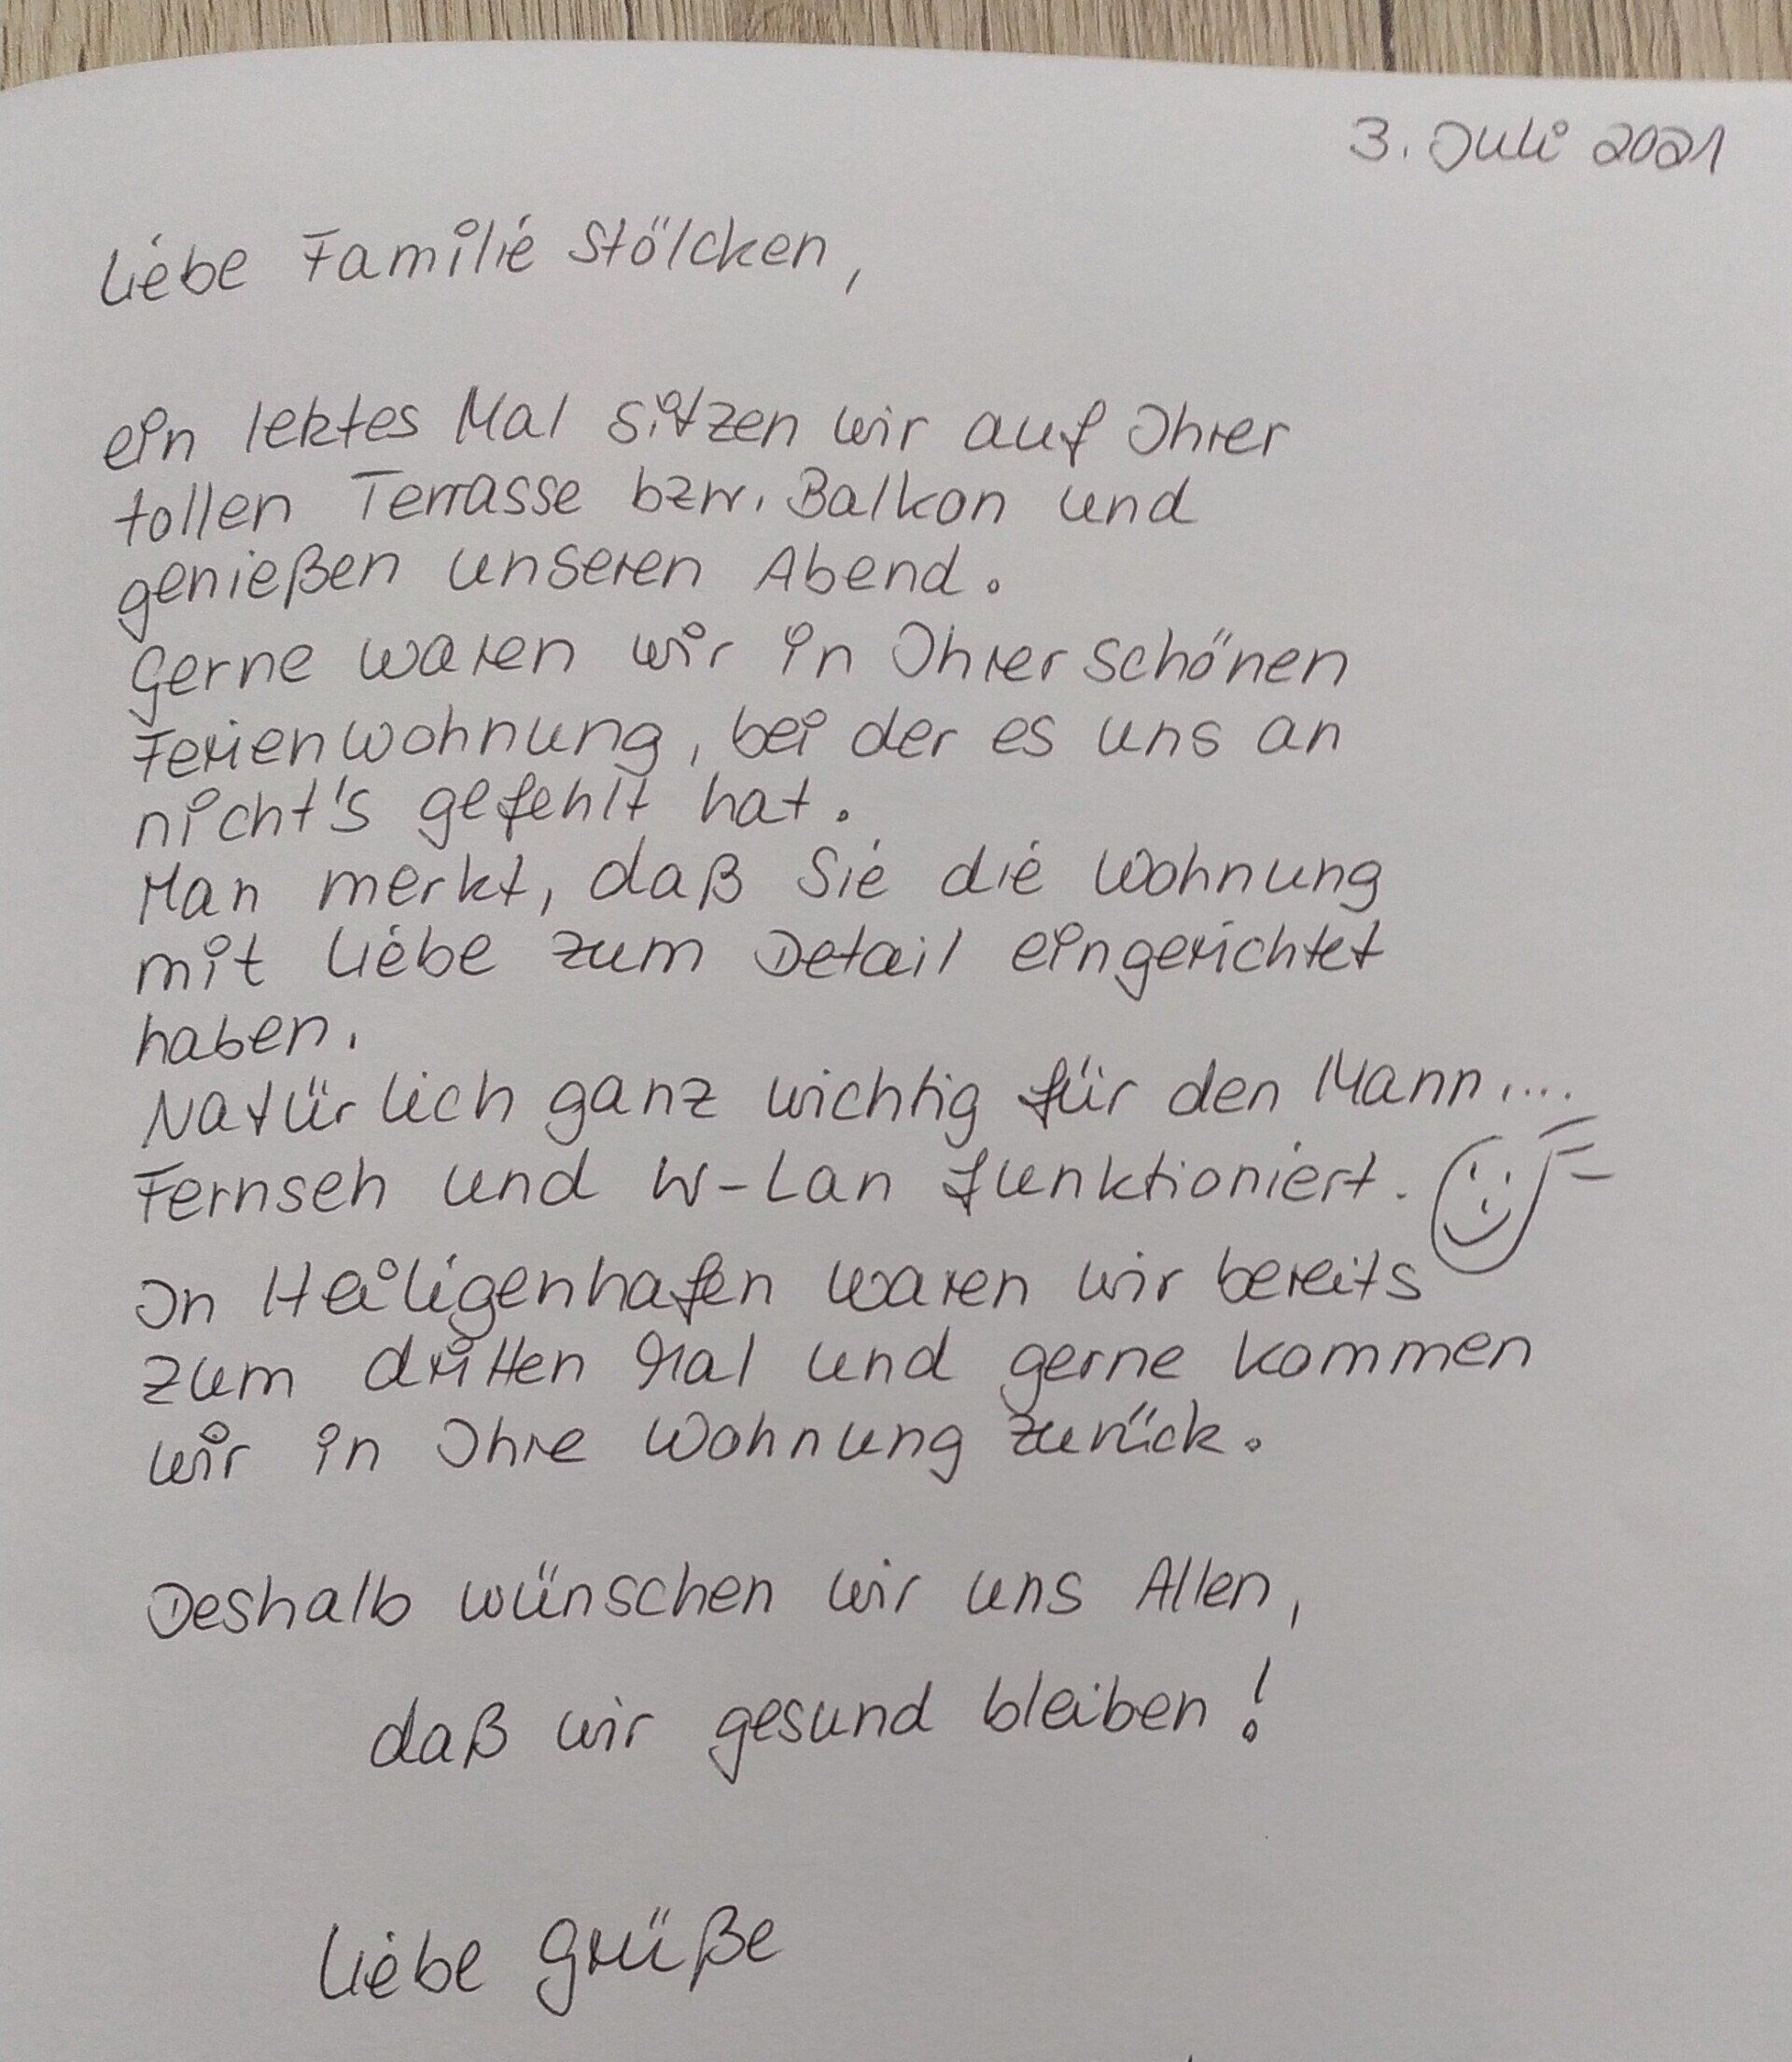 3. Juli 2021
Liebe Familie Stölcken,
ein letztes Mal sitzen wir auf Ihrer
tollen Terrasse bzw. Balkon und
genießen unseren Abend.
Gerne waren wir in Ihrer schönen
Ferienwohnung, bei der es uns an
nicht's gefehlt hat.
Man merkt, daß Sie die Wohnung
mit Liebe zum Detail eingerichtet
haben.
Natürlich ganz wichtig für den Mann....
Fernseh und W-Lan funktioniert.
In Heiligenhafen waren wir bereits
zum dritten Mal und gerne kommen
wir in Ihre Wohnung zurück.
Deshalb wünschen wir uns Allen,
daß wir gesund bleiben!
Liebe Grüße